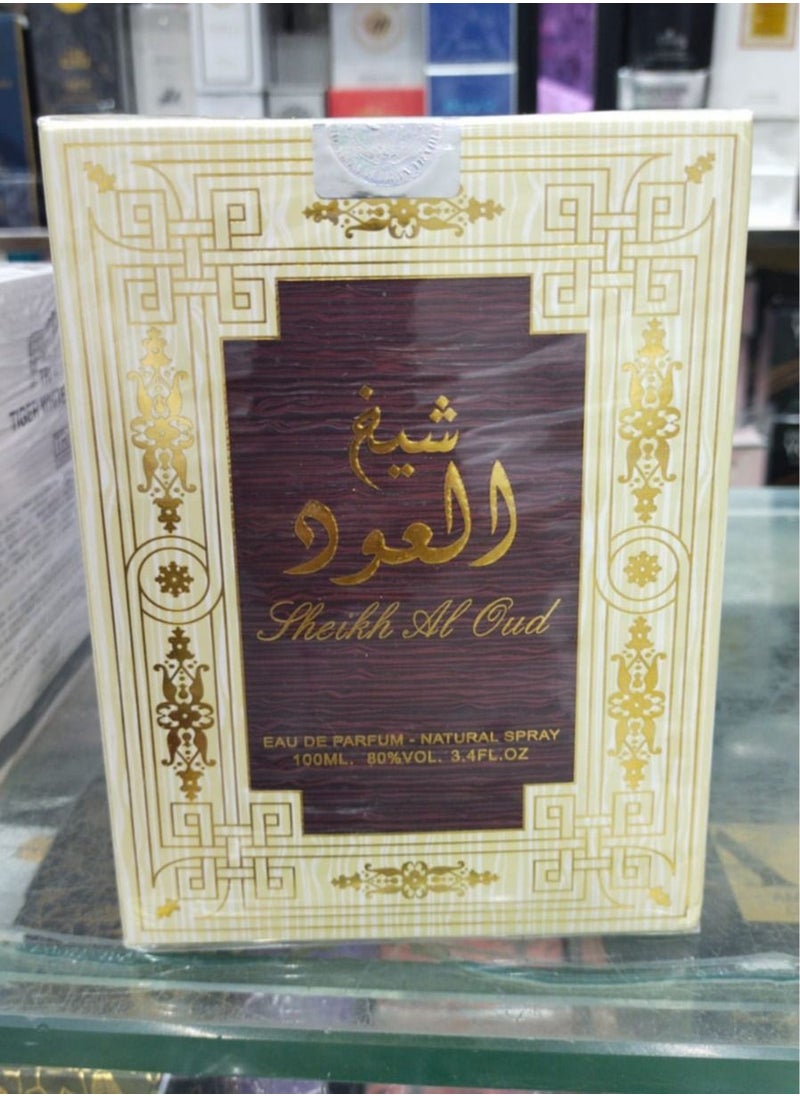 شيخ
العود
Sheikh Al Oud
EAU DE PARFUM - NATURAL SPRAY
100ML. 80%VOL. 3.4FL.OZ